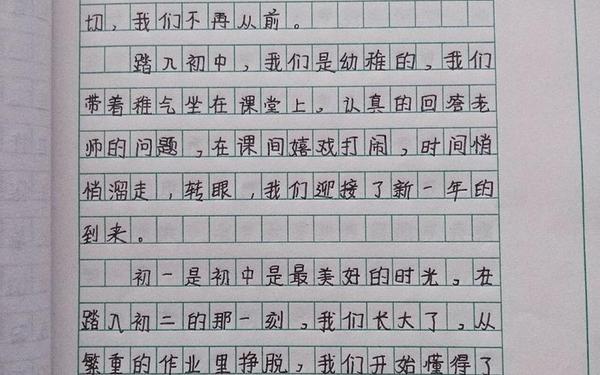 切，我们不再从前。
踏入初中，我们是幼稚的，我们
带着稚气坐在课堂上，认真的回答老
师的问题，在课间嬉戏打闹，时间悄
悄溜走，转眼，我们迎接了新一年的
到来。
初一是初中是最美好的时光。在
踏入初二的那一刻，我们长大了，从
繁重的作业里挣脱，我们开始懂得了